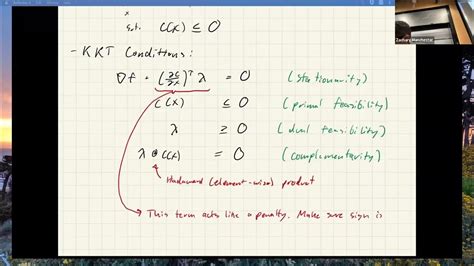 x
s.t. c(x) ≤ 0
- KKT Conditions:
∇f - (∂c/∂x)ᵀ λ = 0 (stationarity)
c(x) ≤ 0 (primal feasibility)
λ ≥ 0 (dual feasibility)
λ ⊙ c(x) = 0 (complementarity)
Hadamard (element-wise) product
This term acts like a penalty. Make sure sign is
Zachary Manchester